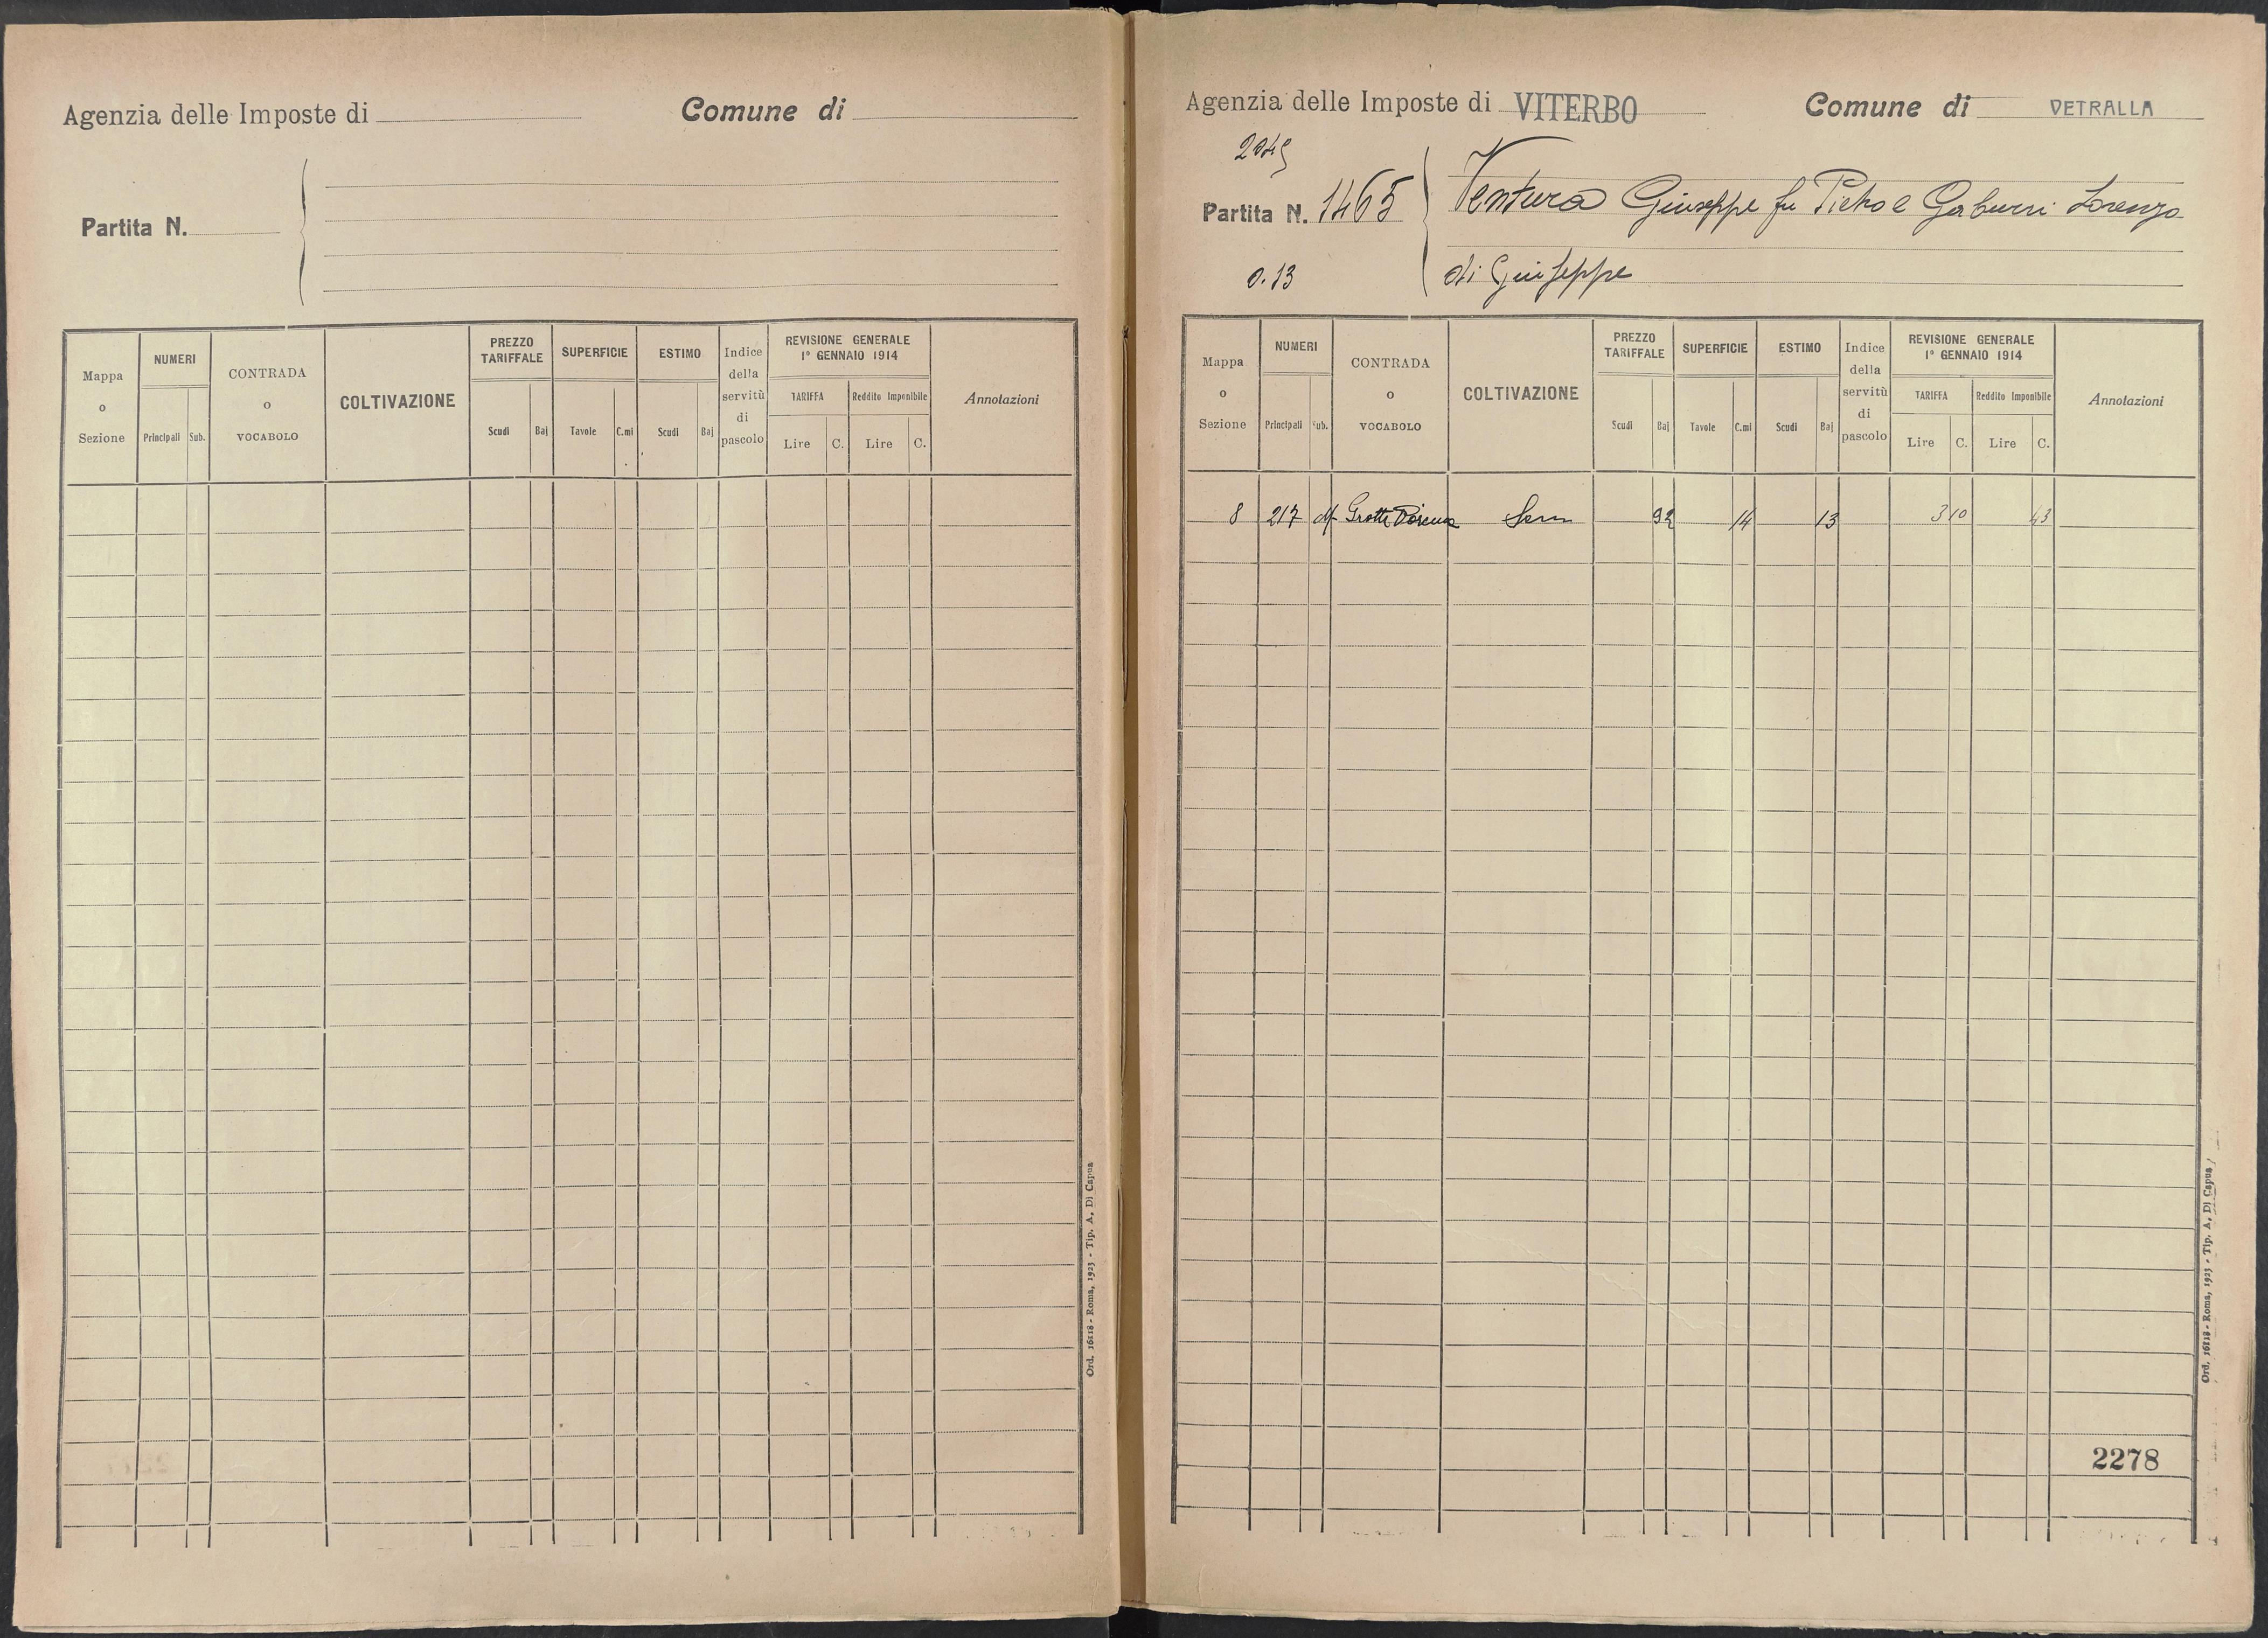 Agenzia delle Imposte di
Comune di
Partita N.
Mappa o Sezione
NUMERI
Principali
Sub.
CONTRADA o VOCABOLO
COLTIVAZIONE
PREZZO TARIFFALE
Scudi
Baj
SUPERFICIE
Tavole
C.mi
ESTIMO
Scudi
Baj
Indice della servitù di pascolo
REVISIONE GENERALE
1º GENNAIO 1914
TARIFFA
Reddito Imponibile
Lire
C.
Lire
C.
Annotazioni
Ord. 16118 - Roma, 1923 - Tip. A. Di Capua
Agenzia delle Imposte di VITERBO
Comune di VETRALLA
Partita N. 1465
0.13
Ventura Giuseppe fu Pietro e Gaburri Lorenzo
di Giuseppe
Mappa o Sezione
NUMERI
Principali
Sub.
CONTRADA o VOCABOLO
COLTIVAZIONE
PREZZO TARIFFALE
Scudi
Baj
SUPERFICIE
Tavole
C.mi
ESTIMO
Scudi
Baj
Indice della servitù di pascolo
REVISIONE GENERALE
1º GENNAIO 1914
TARIFFA
Reddito Imponibile
Lire
C.
Lire
C.
Annotazioni
8 217 Grotte Sem 92 14 13 3 10 43
2278
Ord. 16118 - Roma, 1923 - Tip. A. Di Capua